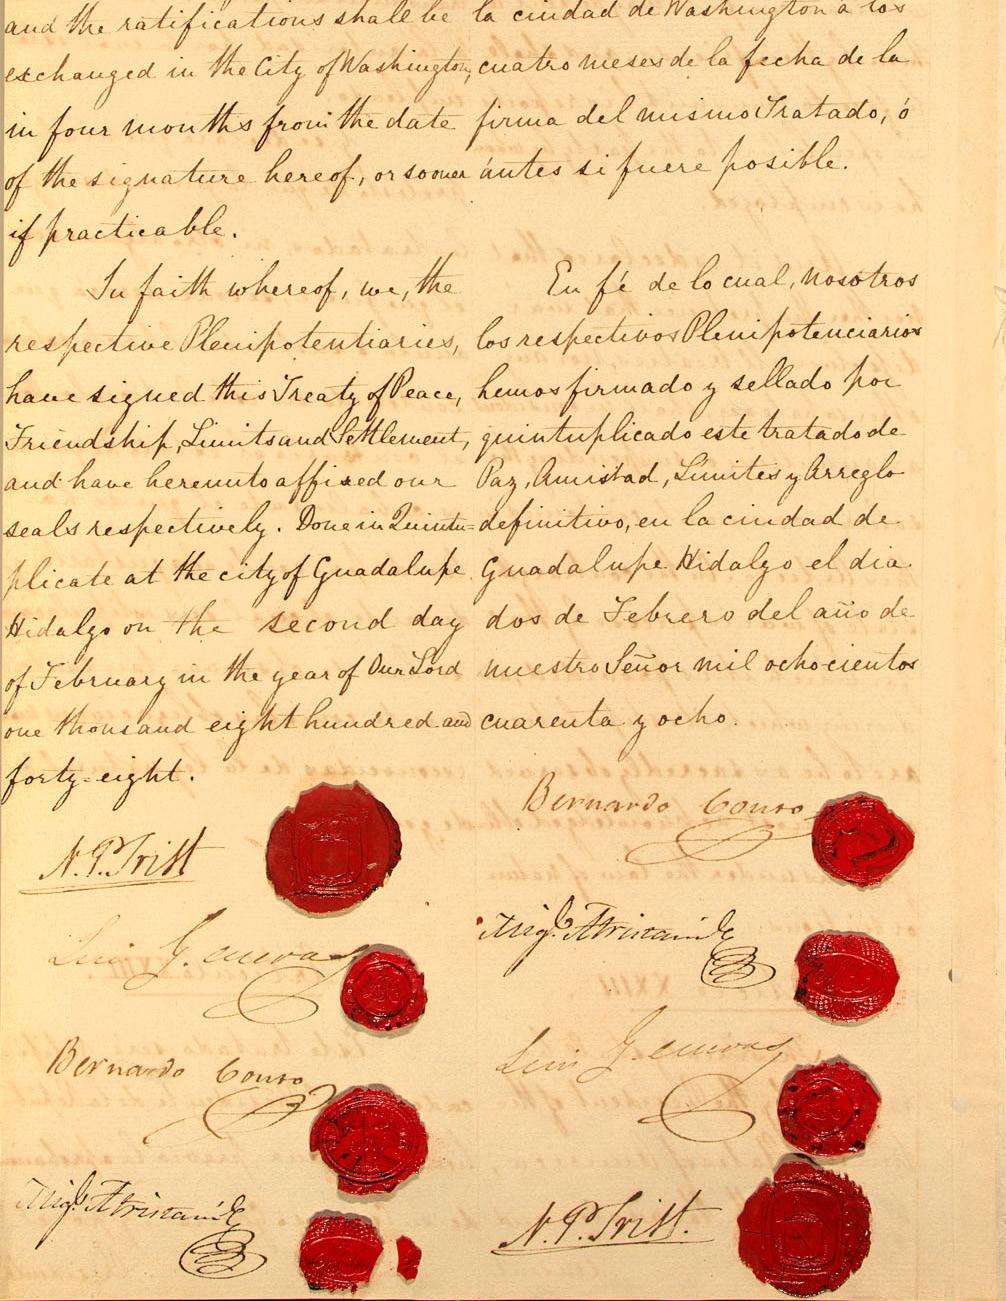 and the ratifications shall be
exchanged in the City of Washington,
in four months from the date
of the signature hereof, or sooner
if practicable.
In faith whereof, we, the
respective Plenipotentiaries,
have signed this Treaty of Peace,
Friendship, Limits and Settlement,
and have hereunto affixed our
seals respectively. Done in Quintu=
plicate at the city of Guadalupe
Hidalgo on the second day
of February in the year of Our Lord
one thousand eight hundred and
forty-eight.
N. P. Trist
Luis G. Cuevas
Bernardo Couto
Migl. Atristain
la ciudad de Washington a los
cuatro meses de la fecha de la
firma del mismo Tratado, ó
ántes si fuere posible.
En fé de lo cual, nosotros
los respectivos Plenipotenciarios
hemos firmado y sellado por
quintuplicado este tratado de
Paz, Amistad, Límites y Arreglo
definitivo, en la ciudad de
Guadalupe Hidalgo el dia
dos de Febrero del año de
nuestro Señor mil ochocientos
cuarenta y ocho.
Bernardo Couto
Migl. Atristain
Luis G. Cuevas
N. P. Trist.